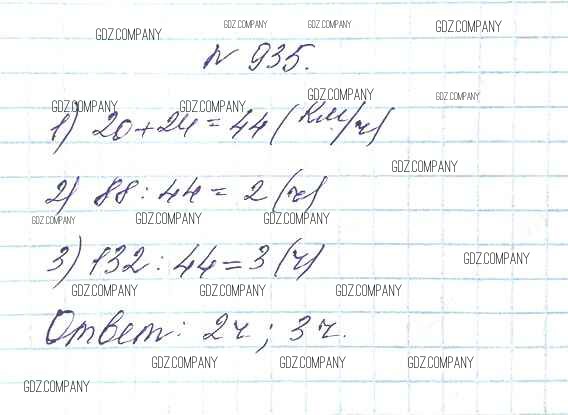 GDZ.COMPANY GDZ.COMPANY GDZ.COMPANY GDZ.COMPANY
№ 935.
GDZ.COMPANY GDZ.COMPANY
GDZ.COMPANY GDZ.COMPANY
1) 20+24=44 (км/ч)
GDZ.COMPANY
2) 88:44=2 (ч)
GDZ.COMPANY GDZ.COMPANY GDZ.COMPANY
3) 132:44=3 (ч)
GDZ.COMPANY
GDZ.COMPANY GDZ.COMPANY GDZ.COMPANY
Ответ: 2ч; 3ч.
GDZ.COMPANY GDZ.COMPANY GDZ.COMPANY
GDZ.COMPANY